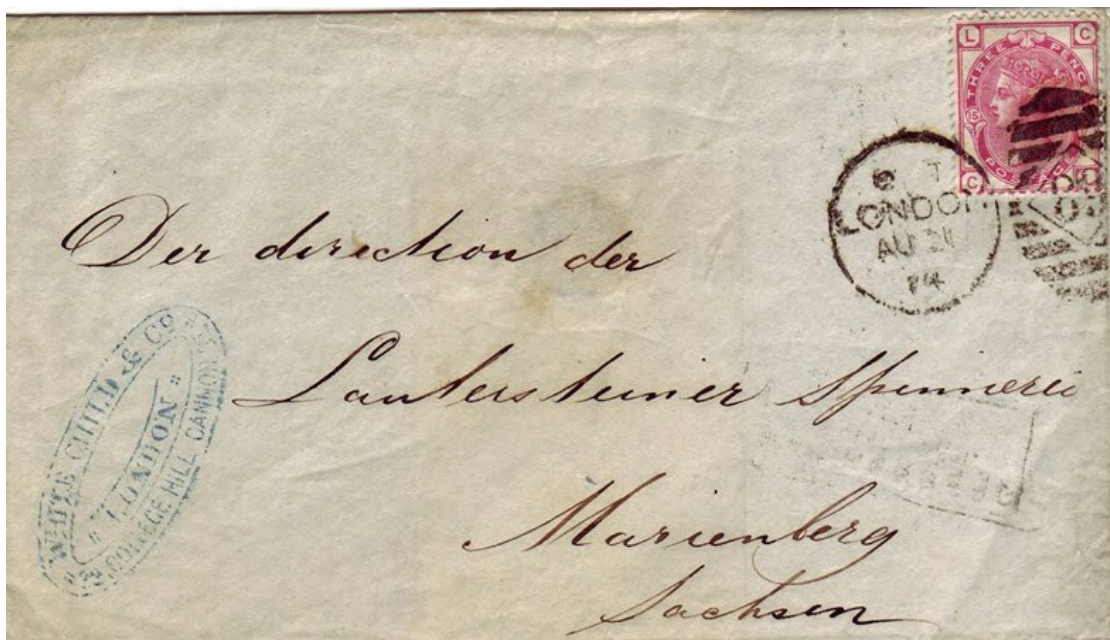 L C
THREE PENCE
15
POSTAGE
C
LONDON
AU 21
74
Der direction der
Lautersteiner Spinnerei
Marienberg
Sachsen
WHITE CHILD & Co
LONDON
COLLEGE HILL CANNON